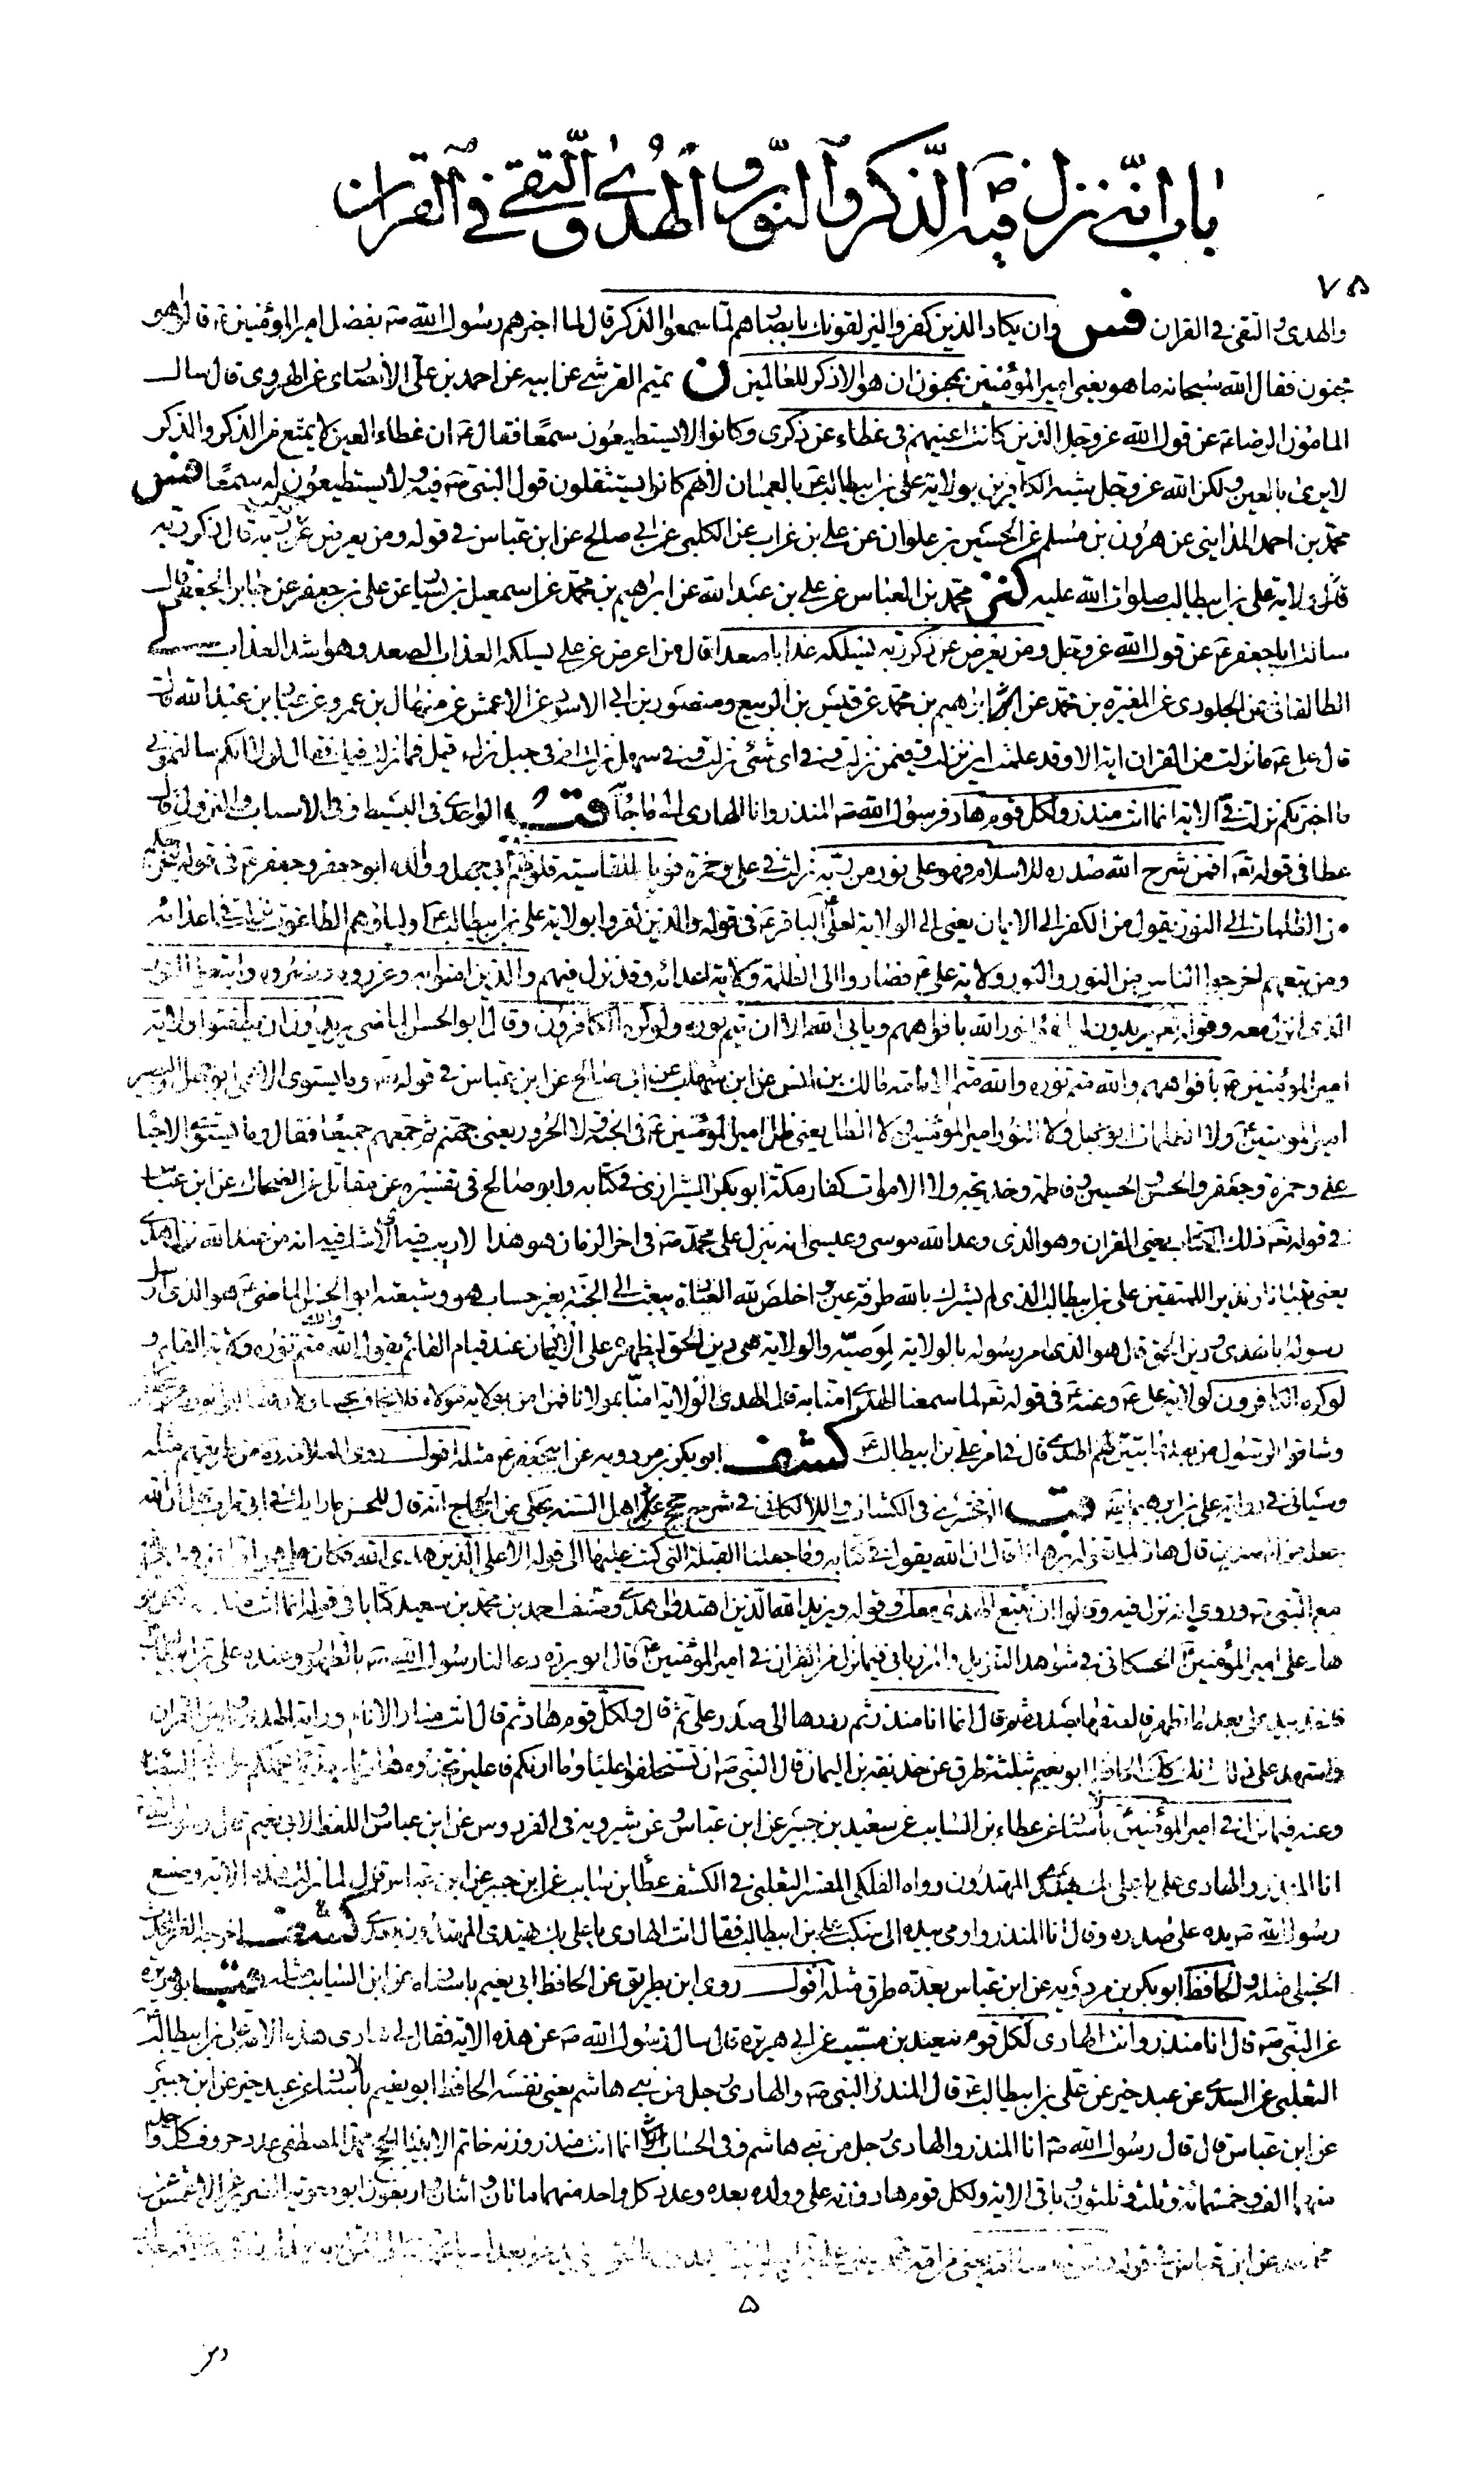 باب انه نزل فيه الذكر والنور والهدى والتقى في القران
٧٥
والهدى والتقى في القران فس وان يكاد الذين كفروا ليزلقونك بابصارهم لما سمعوا الذكر قال لما اخبرهم رسول الله صه بفضل امير المؤمنين ع قالوا هو
مجنون فقال الله سبحانه ما هو يعني امير المؤمنين بمجنون ان هو الا ذكر للعالمين ن تميم القرشي عن ابيه عن احمد بن علي الانصاري عن الهروي قال سال
المامون الرضا ع عن قول الله عز وجل الذين كانت اعينهم في غطاء عن ذكري وكانوا لا يستطيعون سمعا فقال ع ان غطاء العين لا يمنع من الذكر والذكر
لا يرى بالعين ولكن الله عز وجل شبه الكافرين بولاية علي بن ابيطالب ع بالعميان لانهم كانوا يستثقلون قول النبي صه فيه ولا يستطيعون له سمعا فس
محمد بن احمد المدايني عن هرون بن مسلم عن الحسين بن علوان عن علي بن غراب عن الكلبي عن ابي صالح عن ابن عباس في قوله ومن يعرض عن ذكر ربه قال ذكر ربه
ولاية علي بن ابيطالب صلوات الله عليه كنز محمد بن العباس عن علي بن عبد الله عن ابراهيم بن محمد عن اسمعيل بن يسار عن علي بن جعفر عن جابر الجعفي قال
سالت ابا جعفر ع عن قول الله عز وجل ومن يعرض عن ذكر ربه يسلكه عذابا صعدا قال من اعرض عن علي يسلكه العذاب الصعد وهو اشد العذاب
الطالقاني عن الجلودي عن المغيرة بن محمد عن ابراهيم بن محمد عن قيس بن الربيع ومنصور بن ابي الاسود عن الاعمش عن منهال بن عمرو عن عباد بن عبد الله قال
قال علي ع ما نزلت من القران اية الا وقد علمت اين نزلت وفيمن نزلت وفي اي شئ نزلت وفي سهل نزلت او في جبل نزلت قيل فما نزل فيك فقال لولا انكم سالتموني
ما اخبرتكم نزلت في الاية انما انت منذر ولكل قوم هاد فرسول الله صه المنذر وانا الهادي الى ما جاء به قب الواحدي في البسيط وفي الاسباب والنزول قال
عطا في قوله تع افمن شرح الله صدره للاسلام فهو على نور من ربه نزلت في علي وحمزة فويل للقاسية قلوبهم ابي جهل وولده ابو جعفر وجعفر ع في قوله ليخرجكم
من الظلمات الى النور يقول من الكفر الى الايمان يعني الى الولاية لعلي الباقر ع في قوله والذين كفروا بولاية علي بن ابيطالب ع اولياؤهم الطاغوت نزلت في اعدائه
ومن تبعهم اخرجوا الناس من النور والنور ولاية علي ع فصاروا الى الظلمة ولاية اعدائه وقد نزل فيهم والذين امنوا به وعزروه ونصروه واتبعوا النور
الذي انزل معه وقوله تع يريدون ليطفؤا نور الله بافواههم ويابى الله الا ان يتم نوره ولو كره الكافرون وقال ابو الحسن الماضي يريدون ان يطفئوا ولاية
امير المؤمنين ع بافواههم والله متم نوره والله متم الامامة مالك بن انس عن ابن شهاب عن ابي صالح عن ابن عباس في قوله وما يستوي الاعمى ابو جهل والبصير
امير المؤمنين ولا الظلمات ابو جهل ولا النور امير المؤمنين ولا الظل يعني ظل امير المؤمنين ع في الجنة ولا الحرور يعني جهنم ثم جمعهم جميعا فقال وما يستوي الاحياء
علي وحمزة وجعفر والحسن والحسين وفاطمة وخديجة ولا الاموات كفار مكة ابو بكر الشيرازي في كتابه وابو صالح في تفسيره عن مقاتل عن الضحاك عن ابن عباس
في قوله تع ذلك الكتاب يعني القران وهو الذي وعد الله موسى وعيسى انه ينزل على محمد صه في اخر الزمان هو هذا لا ريب فيه اي لا شك فيه انه من عند الله نزل هدى
يعني تبيانا ونذيرا للمتقين علي بن ابيطالب الذي لم يشرك بالله طرفة عين واخلص لله العبادة يبعث الى الجنة بغير حساب هو وشيعته ابو الحسن الماضي ع هو الذي ارسل
رسوله بالهدى ودين الحق قال هو الذي امر رسوله بالولاية لوصيه والولاية هي دين الحق ليظهره على الاديان عند قيام القائم يقول الله والله متم نوره ولاية القايم ولو
كره الكافرون لولاية علي ع وعنه ع في قوله تع لما سمعنا الهدى امنا به قال الهدى الولاية امنا بمولانا فمن امن بولاية مولاه فلا يخاف بخسا ولا رهقا
وشاقوا الرسول من بعد ما تبين لهم الهدى قال في امر علي بن ابيطالب ع كشف ابو بكر بن مردويه عن ابي جعفر ع مثله اقول روى العلامة ره من طريقهم مثله
وسياتي في رواية علي بن ابراهيم قب الزمخشري في الكشاف واللالكاني في شرح حجج اهل السنة يحكي عن الحجاج انه قال للحسن ما رايك في ابي تراب قال ان الله
جعله من المهتدين قال هات لما تقول برهانا قال ان الله يقول في كتابه وما جعلنا القبلة التي كنت عليها الى قوله الا على الذين هدى الله فكان علي هو اول من هدى الله
مع النبي صه وروي انه نزل فيه وقالوا ان نتبع الهدى معك وقوله ويزيد الله الذين اهتدوا هدى وصنف احمد بن محمد بن سعيد كتابا في قوله انما انت منذر ولكل قوم
هاد علي امير المؤمنين الحسكاني في شواهد التنزيل والمرزباني فيما نزل من القران في امير المؤمنين قال ابو برزة دعا لنا رسول الله صه بالطهور وعنده علي بن ابيطالب
فاخذ بيد علي بعد ما تطهر فالصقها بصدره ثم قال انما انا منذر ثم ردها الى صدر علي ثم قال ولكل قوم هاد ثم قال انت منار الانام وراية الهدى وامين القران
واشهد على ذلك انك كذلك الحافظ ابو نعيم بثلثة طرق عن حذيفة بن اليمان قال النبي صه ان تستخلفوا عليا وما اراكم فاعلين تجدوه هاديا مهديا يحملكم على المحجة البيضاء
وعنه فيما نزل في امير المؤمنين باسناده عن عطاء بن السايب عن سعيد بن جبير عن ابن عباس وعن شيرويه في الفردوس عن ابن عباس واللفظ لابي نعيم قال رسول الله
انا المنذر والهادي علي يا علي بك يهتدي المهتدون رواه الفلكي المفسر الثعلبي في الكشف عطا بن سايب عن ابن جبير عن ابن عباس قال لما نزلت هذه الاية وضع
رسول الله صه يده على صدره وقال انا المنذر واومى بيده الى منكب علي بن ابيطالب فقال انت الهادي يا علي بك يهتدي المهتدون بعدي كشف اخرج العز المحدث
الحنبلي مثله والحافظ ابو بكر بن مردويه عن ابن عباس بعدة طرق مثله اقول روى ابن بطريق عن الحافظ ابي نعيم باسناده عن ابن السايب مثله قب ابو هريرة
عن النبي صه قال انا منذر وانت الهادي لكل قوم سعيد بن مسيب عن ابي هريرة قال سال رسول الله صه عن هذه الاية فقال لي هادي هذه الامة علي بن ابيطالب
الثعلبي عن السدي عن عبد خير عن علي بن ابيطالب ع قال المنذر النبي صه والهادي رجل من بني هاشم يعني نفسه الحافظ ابو نعيم باسناده عن عبد خير عن ابن جبير
عن ابن عباس قال قال رسول الله صه انا المنذر والهادي رجل من بني هاشم وفي الحساب انما انت منذر وزنه خاتم الانبياء الحجج محمد المصطفى عدد حروف كل واحد
منهما الف وخمسمائة وثلث وثلثون وباقي الاية ولكل قوم هاد وزنه علي وولده بعده وعدد كل واحد منهما مائتان واثنان واربعون ابو معوية الضرير عن الاعمش عن
عن ابن عباس في قوله
۵